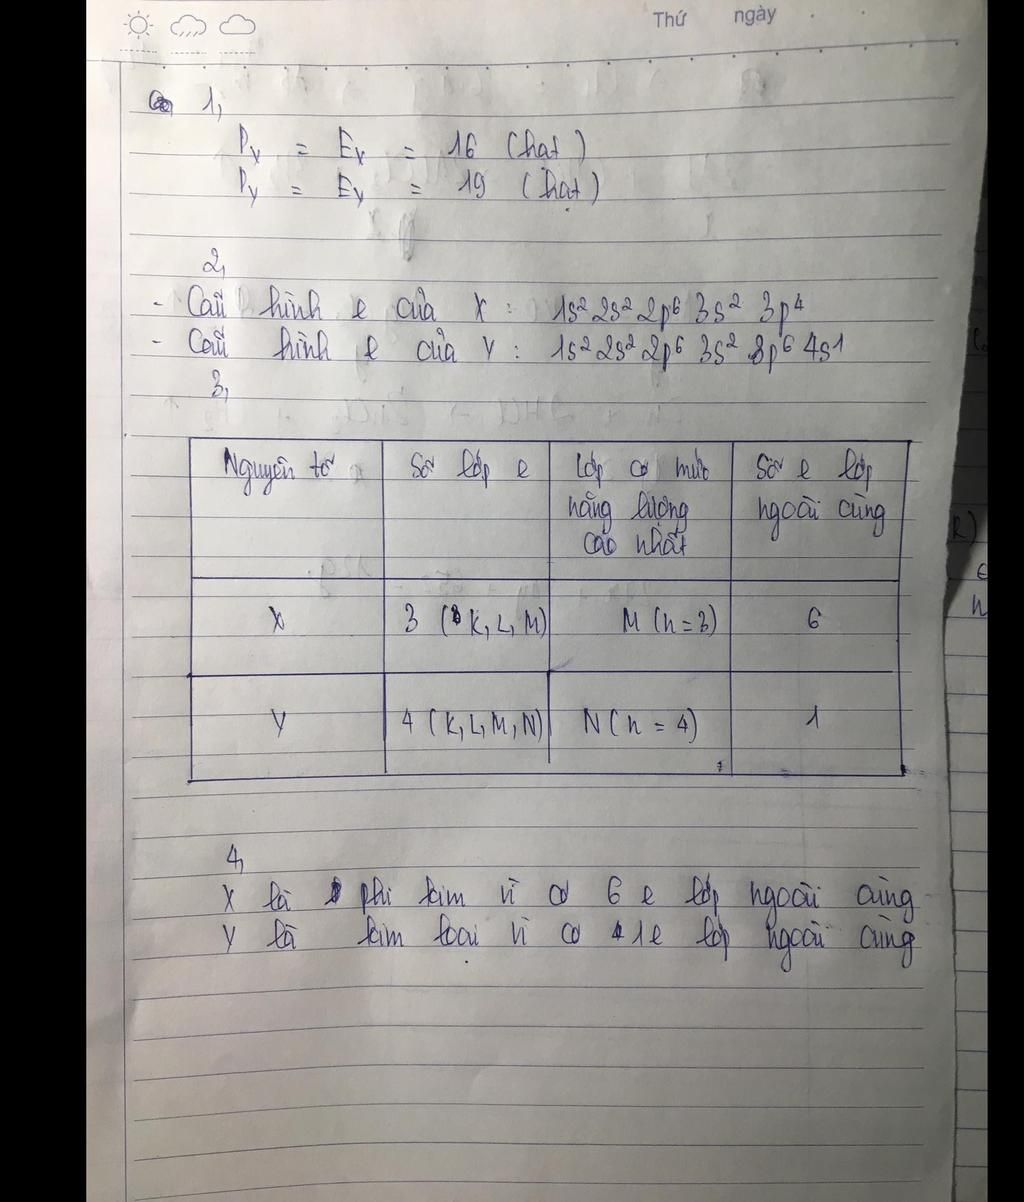 Thứ ngày
1,
Px = Ex = 16 (hạt)
Py = Ey = 19 (hạt)
2,
- Cấu hình e của X : 1s² 2s² 2p⁶ 3s² 3p⁴
- Cấu hình e của Y : 1s² 2s² 2p⁶ 3s² 3p⁶ 4s¹
3,
Nguyên tố Số lớp e Lớp có mức năng lượng cao nhất Số e lớp ngoài cùng
X 3 (K, L, M) M (n = 3) 6
Y 4 (K, L, M, N) N (n = 4) 1
4,
X là phi kim vì có 6 e lớp ngoài cùng
Y là kim loại vì có 1e lớp ngoài cùng